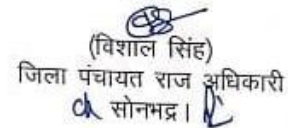 (विशाल सिंह)
जिला पंचायत राज अधिकारी
सोनभद्र।